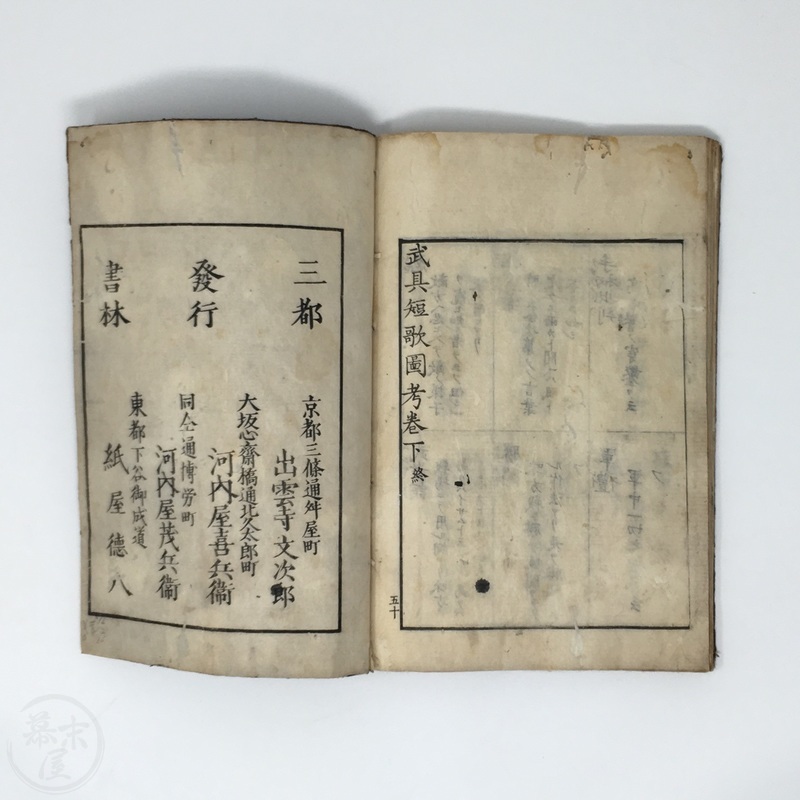 武具短歌圖考卷下終
五十
三都
發行
書林
京都三條通舛屋町
出雲寺文次郎
大坂心齋橋通北久太郎町
河内屋喜兵衞
同仝通博労町
河内屋茂兵衞
東都下谷御成道
紙屋德八
幕末屋